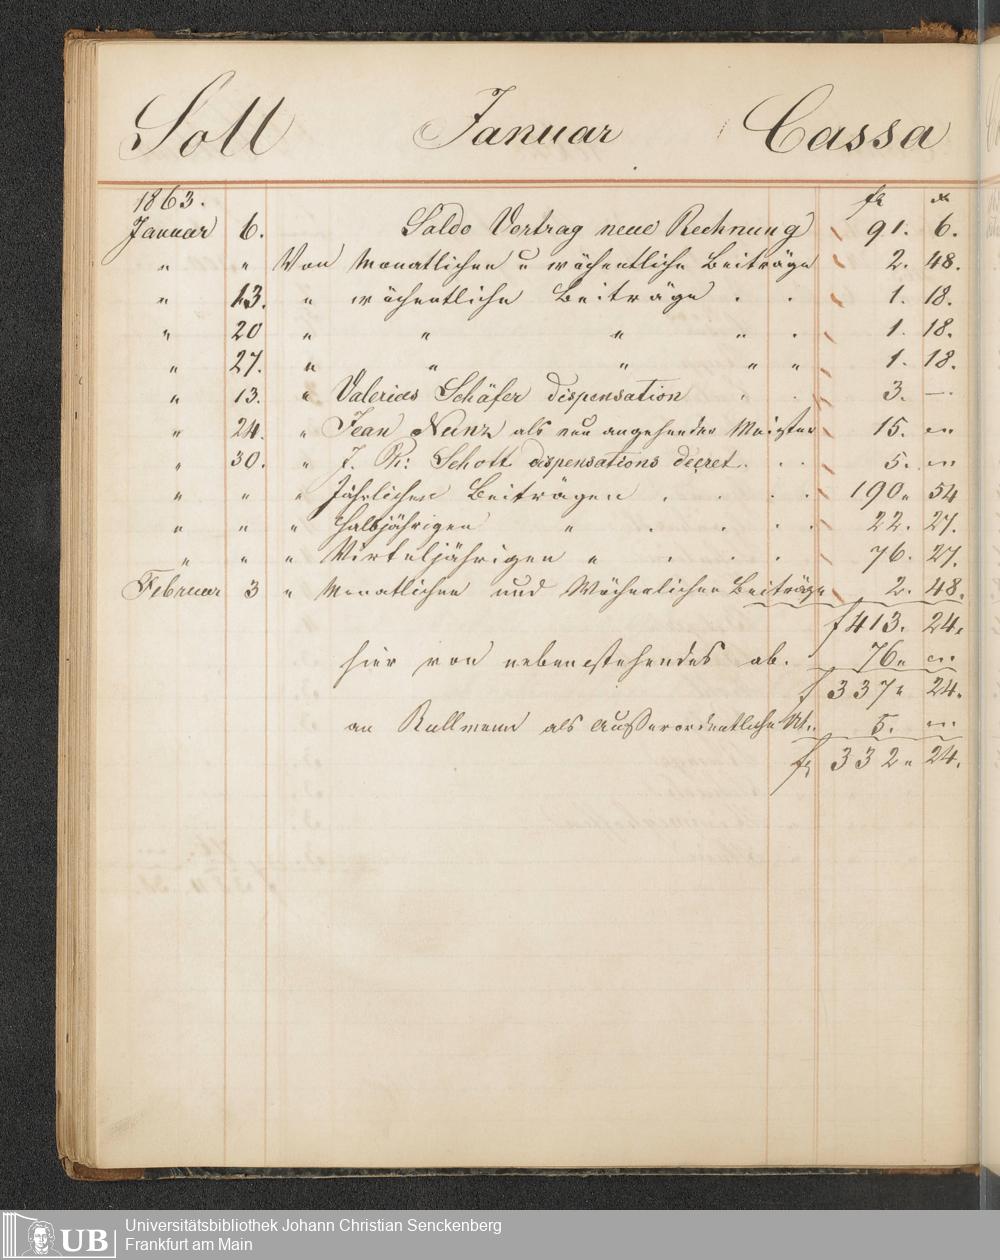 Soll Januar Cassa
1863. fl x
Januar 6. Saldo Vortrag neue Rechnung 91. 6.
" " Von Monatlichen u wöchentliche Beiträge 2. 48.
" 13. " wöchentliche Beiträge . . 1. 18.
" 20 " " " " . 1. 18.
" 27. " " " " " 1. 18.
" 13. " Valerias Schäfer dispensation . . 3. —
" 24. " Jean Nunz als neu angehender Meister 15. "
" 30. " J. Ph: Schott dispensations decret. . . 5. "
" " " Jährlichen Beiträgen . . . . 190" 54
" " " halbjährigen " . . . . 22. 27.
" " " Virteljährigen " . . . 76. 27.
Februar 3 " Monatlichen und Wöchenlichen Beiträge 2. 48.
f 413. 24.
hier von nebenstehendes ab. 76" "
f 337" 24.
an Kullmann als Außerordentliche 5. "
fl 332" 24.
UB Universitätsbibliothek Johann Christian Senckenberg
Frankfurt am Main